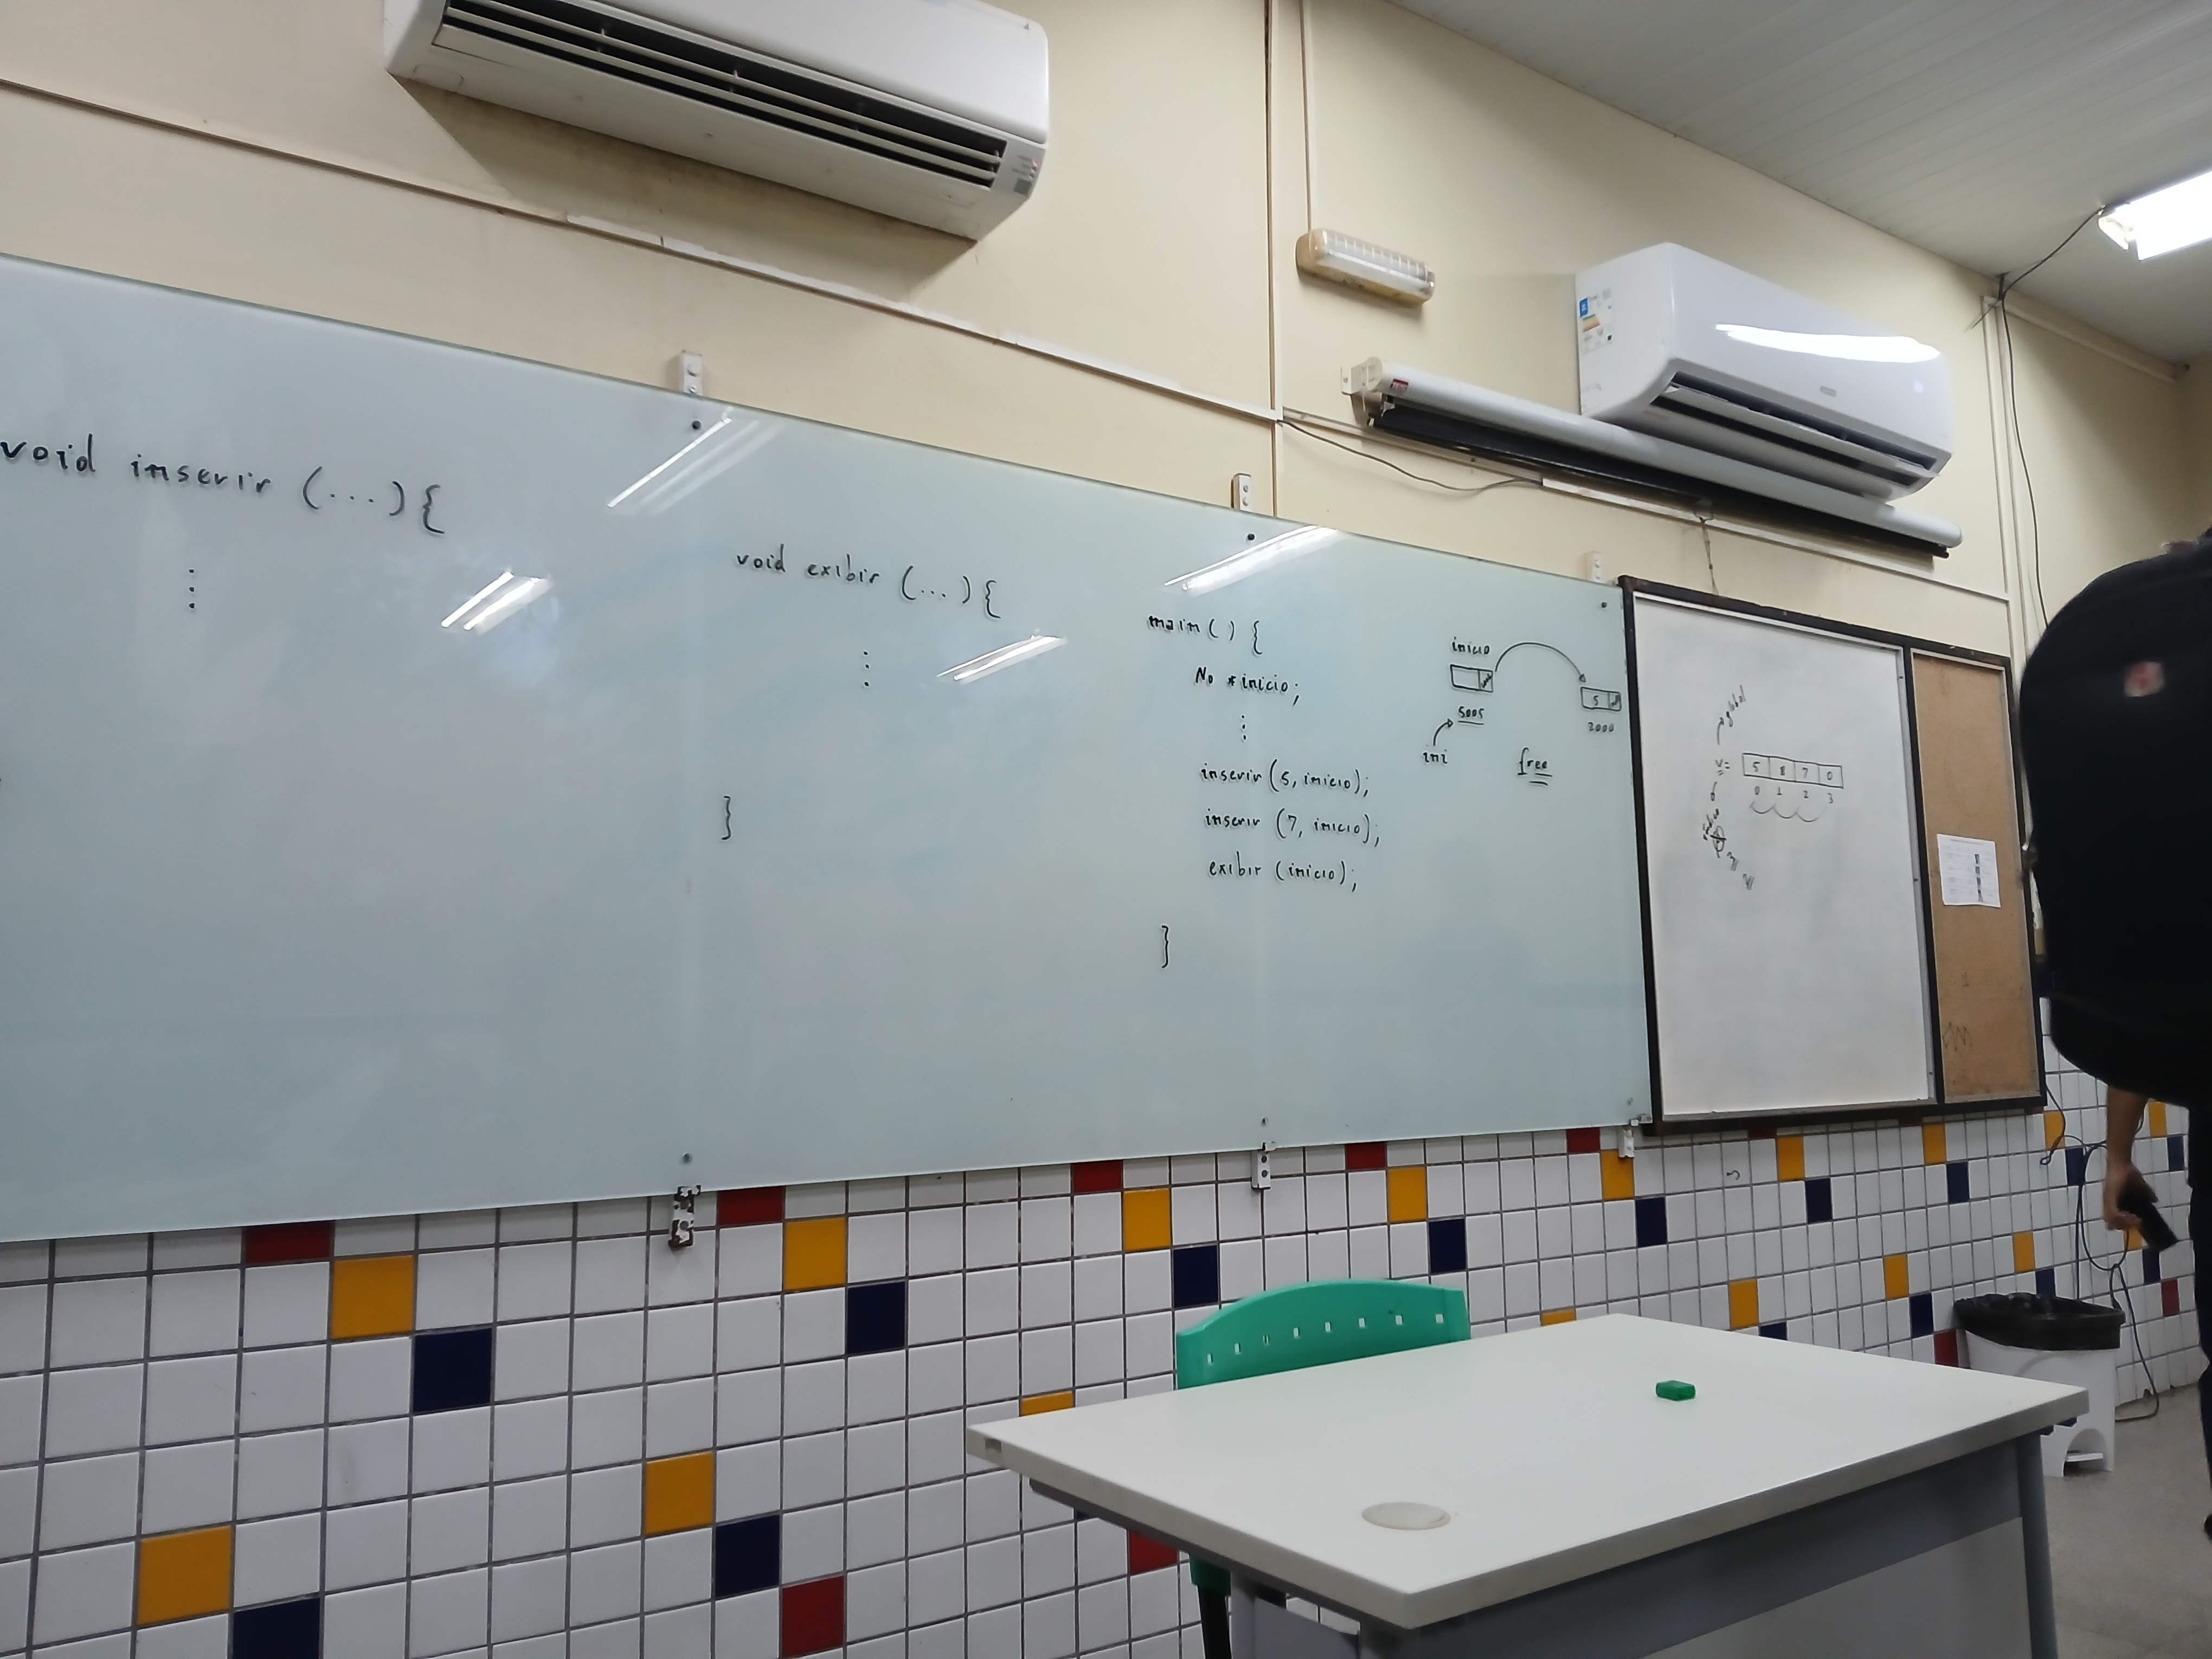 void inserir (...) {
⋮
void exibir (...) {
⋮
}
main() {
No *inicio;
⋮
inserir (5, inicio);
inserir (7, inicio);
exibir (inicio);
}
inicio
5005
ini
5
2000
free
global
v = 5 8 7 0
0 1 2 3